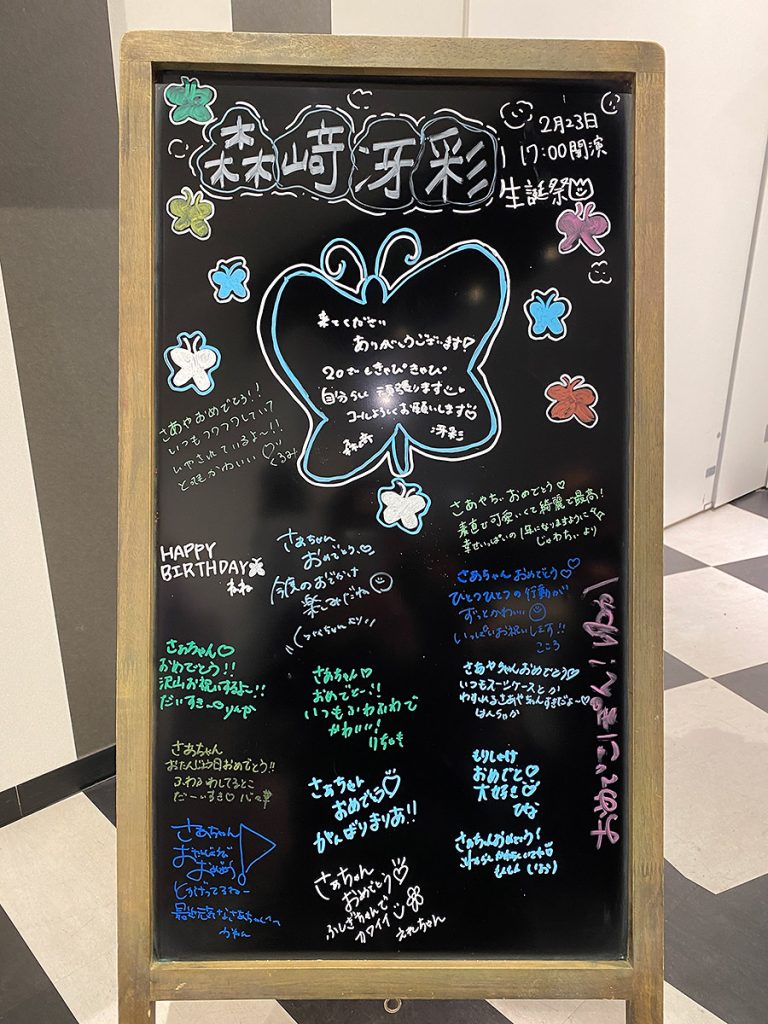 森﨑冴彩
2月23日
17:00開演
生誕祭
来てくださり
ありがとうございます♡
20才もきゃぴきゃぴ
自分らしく頑張ります
コールよろしくお願いします
森﨑 冴彩
さあやおめでとう!!
いつもフワフワしていて
いやされているよ〜!!
とてもかわいい♡
くるみ
さあやちゃんおめでとう♡
素直で可愛いくて綺麗で最高!
幸せいっぱいの1年になりますように
じゅわちぃより
HAPPY
BIRTHDAY
ねね
さあちゃん
おめでとう♡
今度のおでかけ
楽しみだね
さあちゃんおめでとう♡♡
ひとつひとつの行動が
ずっとかわいい
いっぱいお祝いします!!
こころ
さぁちゃん♡
おめでとう!!
沢山お祝いするよ〜!!
だいすきー♡りんか
さあちゃん♡
おめでと〜!!
いつもふわふわで
かわいい!
さあやちゃんおめでとう♡
いつもスーツケースとか
わすれるさあやちゃんすきだよ〜♡
さあちゃん
おたんじょう日おめでとう!!
ふわふわしてるとこ
だーいすき♡
さあちゃん
おめでとう♡
がんばりまりあ!!
もりしゃけ
おめでと♡
大好き♡
ひな
さぁちゃん
おたんじょうび
おめでとう!
さぁちゃん♡
おめでとう
ふしぎちゃんで
カワイイ
えれちゃん
さぁちゃんおめでとう!